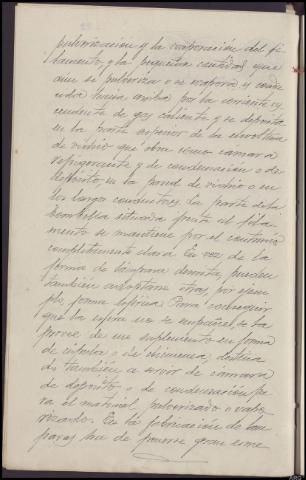 pulverizacion y la evaporación del fi-
lamento, y la pequeña cantidad que
aun se pulveriza o se evapora, es condu-
cida hacia arriba por la corriente as-
cendente de gas caliente y se deposita
en la parte superior de la envoltura
de vidrio que obra como cámara
refrigerante y de condensación o de
depósito, en la pared de vidrio o en
los largos conductores. La parte de la
bombilla situada frente al fila-
mento se mantiene por el contrario
completamente clara. En vez de la
forma de lámpara descrita, pueden
tambien adoptarse otras, por ejem-
plo, forma esférica. Para conseguir
que la esfera no se empañe, se la
provee de un suplemento en forma
de de chimenea, destina-
do tambien a servir de cámara
de depósito o de condensación pa-
ra el material pulverizado o vapo-
rizado. En la fabricación de lám-
paras ha de ponerse gran esme